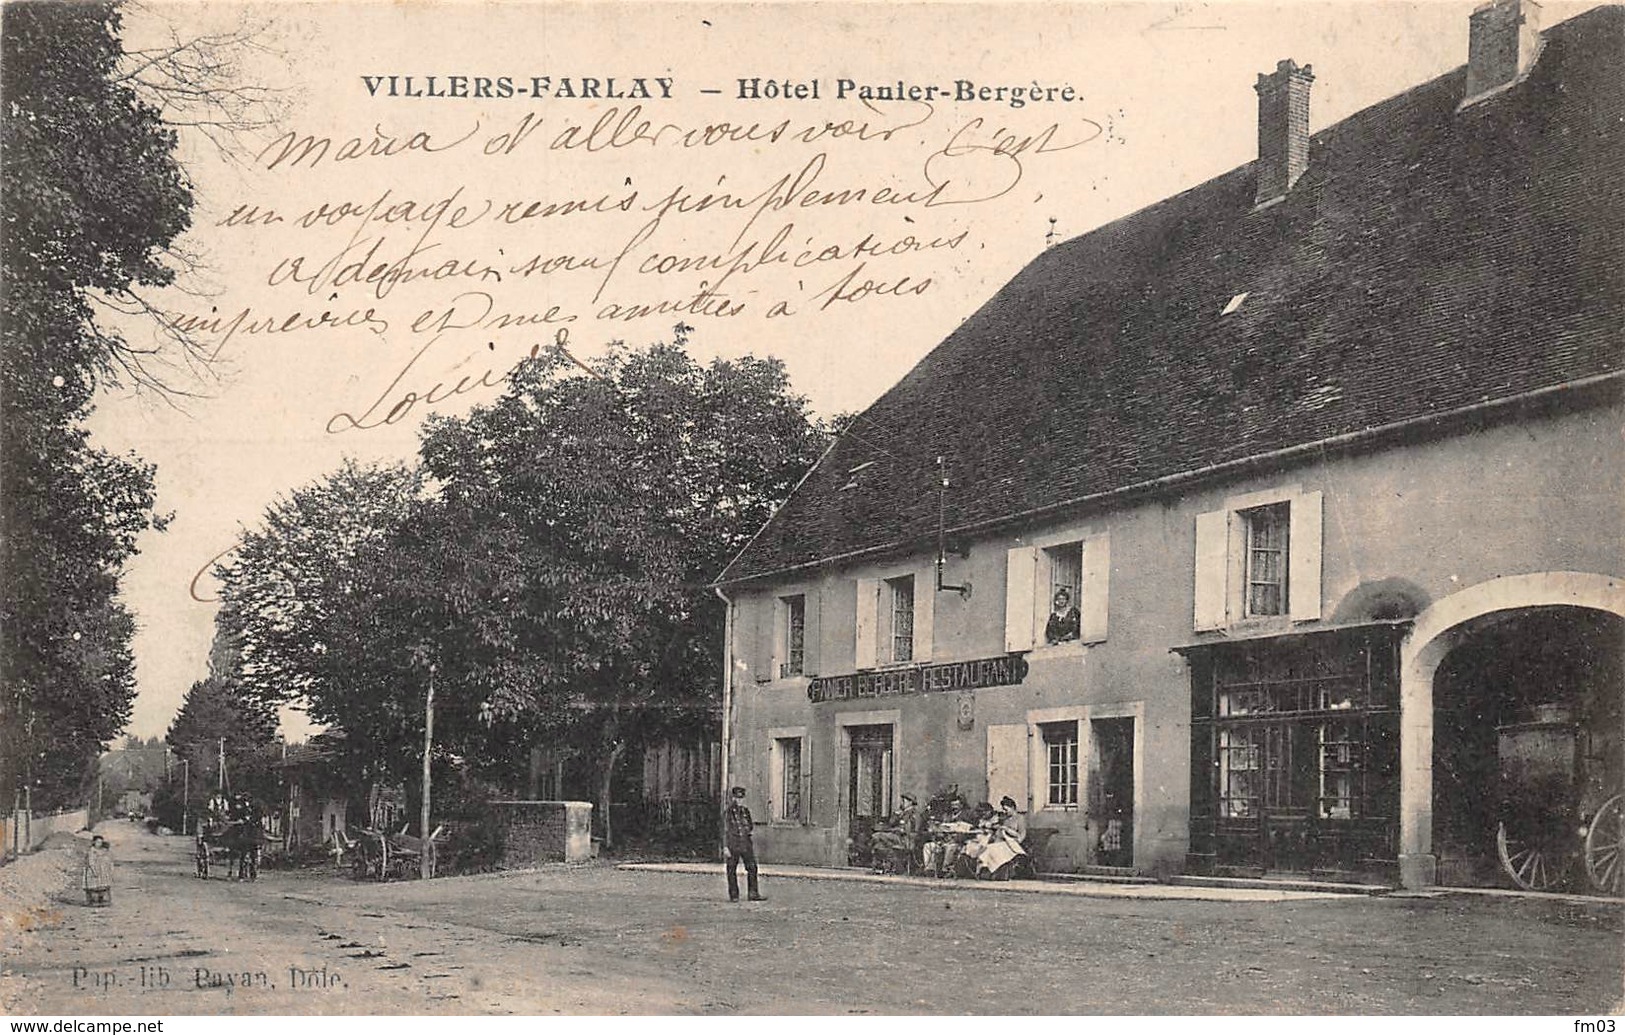 VILLERS-FARLAY – Hôtel Panier-Bergère.
Maria d'aller vous voir. C'est
un voyage remis simplement
à demain sauf complications
imprévues et mes amitiés à tous
Louise
PANIER BERGERE RESTAURANT
Pap.-lib. Payan, Dôle.
www.delcampe.net
fm03